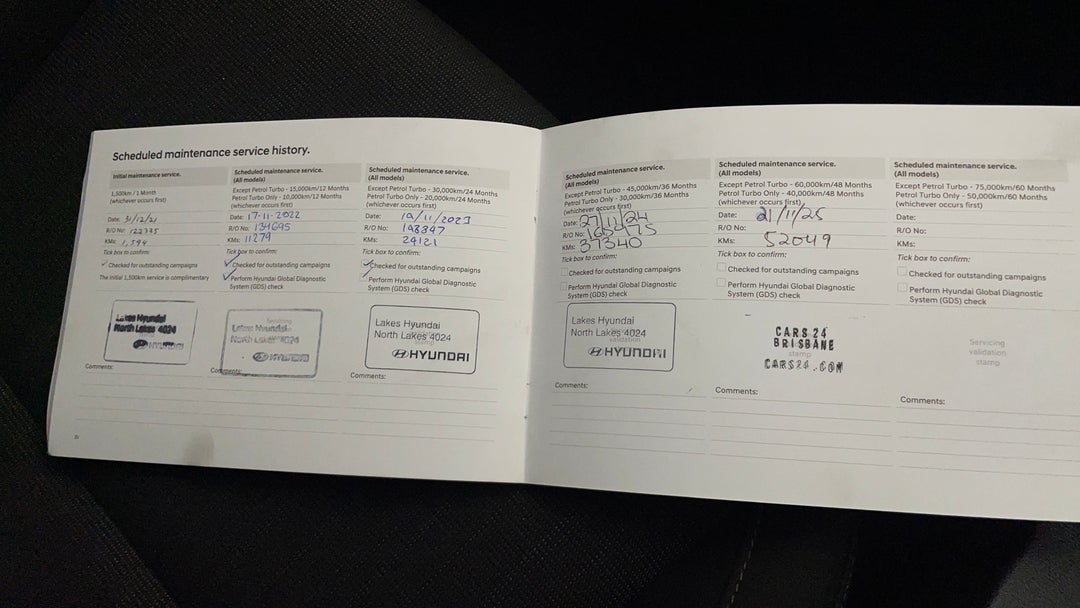 Scheduled maintenance service history.
Initial maintenance service.
1,500km / 1 Month
(whichever occurs first)
Date: 31/12/21
R/O No: 122335
KMs: 1,594
Tick box to confirm:
Checked for outstanding campaigns
The initial 1,500km service is complimentary
Lakes Hyundai
North Lakes 4024
HYUNDAI
Comments:
Scheduled maintenance service.
(All models)
Except Petrol Turbo - 15,000km/12 Months
Petrol Turbo Only - 10,000km/12 Months
(whichever occurs first)
Date: 17-11-2022
R/O No: 134695
KMs: 11279
Tick box to confirm:
Checked for outstanding campaigns
Perform Hyundai Global Diagnostic
System (GDS) check
Servicing
Lakes Hyundai
North Lakes 4024
HYUNDAI
Comments:
Scheduled maintenance service.
(All models)
Except Petrol Turbo - 30,000km/24 Months
Petrol Turbo Only - 20,000km/24 Months
(whichever occurs first)
Date: 10/11/2023
R/O No: 148847
KMs: 24121
Tick box to confirm:
Checked for outstanding campaigns
Perform Hyundai Global Diagnostic
System (GDS) check
Lakes Hyundai
North Lakes 4024
HYUNDAI
Comments:
Scheduled maintenance service.
(All models)
Except Petrol Turbo - 45,000km/36 Months
Petrol Turbo Only - 30,000km/36 Months
(whichever occurs first)
Date: 27/11/24
R/O No: 165475
KMs: 37340
Tick box to confirm:
Checked for outstanding campaigns
Perform Hyundai Global Diagnostic
System (GDS) check
Lakes Hyundai
North Lakes 4024
validation
HYUNDAI
Comments:
Scheduled maintenance service.
(All models)
Except Petrol Turbo - 60,000km/48 Months
Petrol Turbo Only - 40,000km/48 Months
(whichever occurs first)
Date: 21/11/25
R/O No:
KMs: 52049
Tick box to confirm:
Checked for outstanding campaigns
Perform Hyundai Global Diagnostic
System (GDS) check
CARS24
BRISBANE
stamp
CARS24.COM
Comments:
Scheduled maintenance service.
(All models)
Except Petrol Turbo - 75,000km/60 Months
Petrol Turbo Only - 50,000km/60 Months
(whichever occurs first)
Date:
R/O No:
KMs:
Tick box to confirm:
Checked for outstanding campaigns
Perform Hyundai Global Diagnostic
System (GDS) check
Servicing
validation
stamp
Comments: